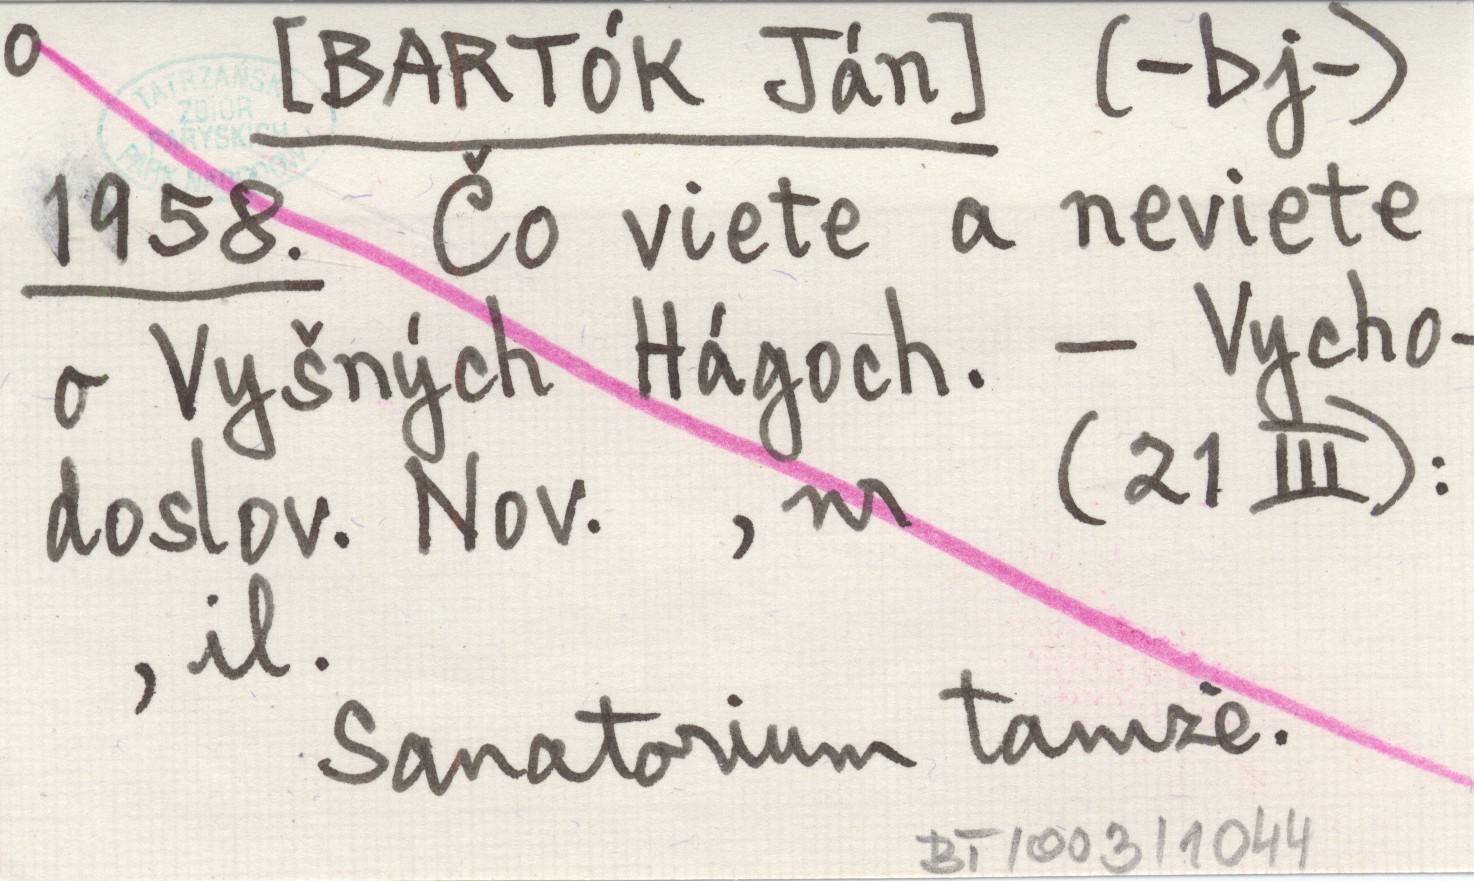 o [BARTÓK Ján] (-bj-)
TATRZAŃSKI
ZBIÓR
PARYSKICH
PARK NARODOWY
1958. Čo viete a neviete
o Vyšných Hágoch. – Vycho-
doslov. Nov. , nr (21 III):
, il.
Sanatorium tamże.
BT/003/1044